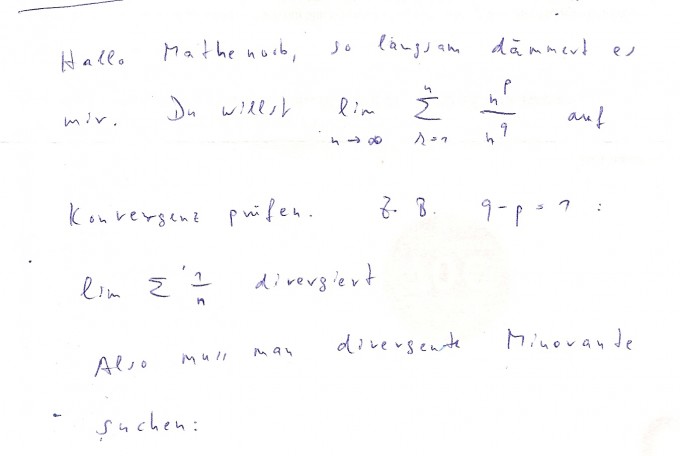 Hallo Mathenoob, so langsam dämmert es
mir. Du willst lim n→∞ Σ r=1 n n^p/n^q auf
Konvergenz prüfen. Z. B. q-p=1:
lim Σ 1/n divergiert
Also muss man divergente Minorante
suchen: